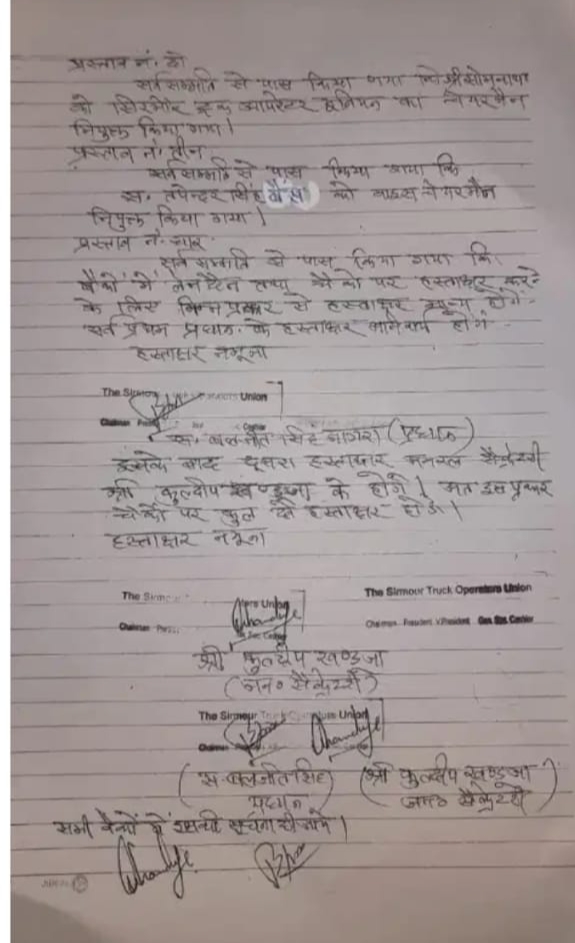 प्रस्ताव नं. दो
सर्वसम्मति से पास किया गया कि श्री सोमनाथ
को सिरमौर ट्रक आपरेटर यूनियन का चेयरमैन
नियुक्त किया गया।
प्रस्ताव नं. तीन
सर्वसम्मति से पास किया गया कि
स. तपेन्दर सिंह सैनी को वाइस चेयरमैन
नियुक्त किया गया।
प्रस्ताव नं. चार.
सर्व सम्मति से पास किया गया कि.
बैंकों में लेनदेन तथा चैकों पर हस्ताक्षर करने
के लिए निम्न प्रकार से हस्ताक्षर मान्य होंगे-
सर्व प्रथम प्रधान. के हस्ताक्षर अनिवार्य होंगे
हस्ताक्षर नमूना
The Sirmour Union
Chairman Cashier
स. बलजीत सिंह नागरा (प्रधान)
इसके बाद दूसरा हस्ताक्षर जनरल सैक्रेटरी
श्री कुलदीप खण्डूजा के होंगे। अतः इस प्रकार
चैकों पर कुल दो हस्ताक्षर होंगे।
हस्ताक्षर नमूना
The Sirmour Union
The Sirmour Truck Operators Union
Chairman
Chairman President V.President Gen. Sec. Cashier
श्री कुलदीप खण्डूजा
(जन० सैक्रेटरी)
The Sirmour Truck Operators Union
(स. बलजीत सिंह) (श्री कुलदीप खण्डूजा)
प्रधान जन० सैक्रेटरी
सभी बैंकों में इसकी सूचना दी जावे।